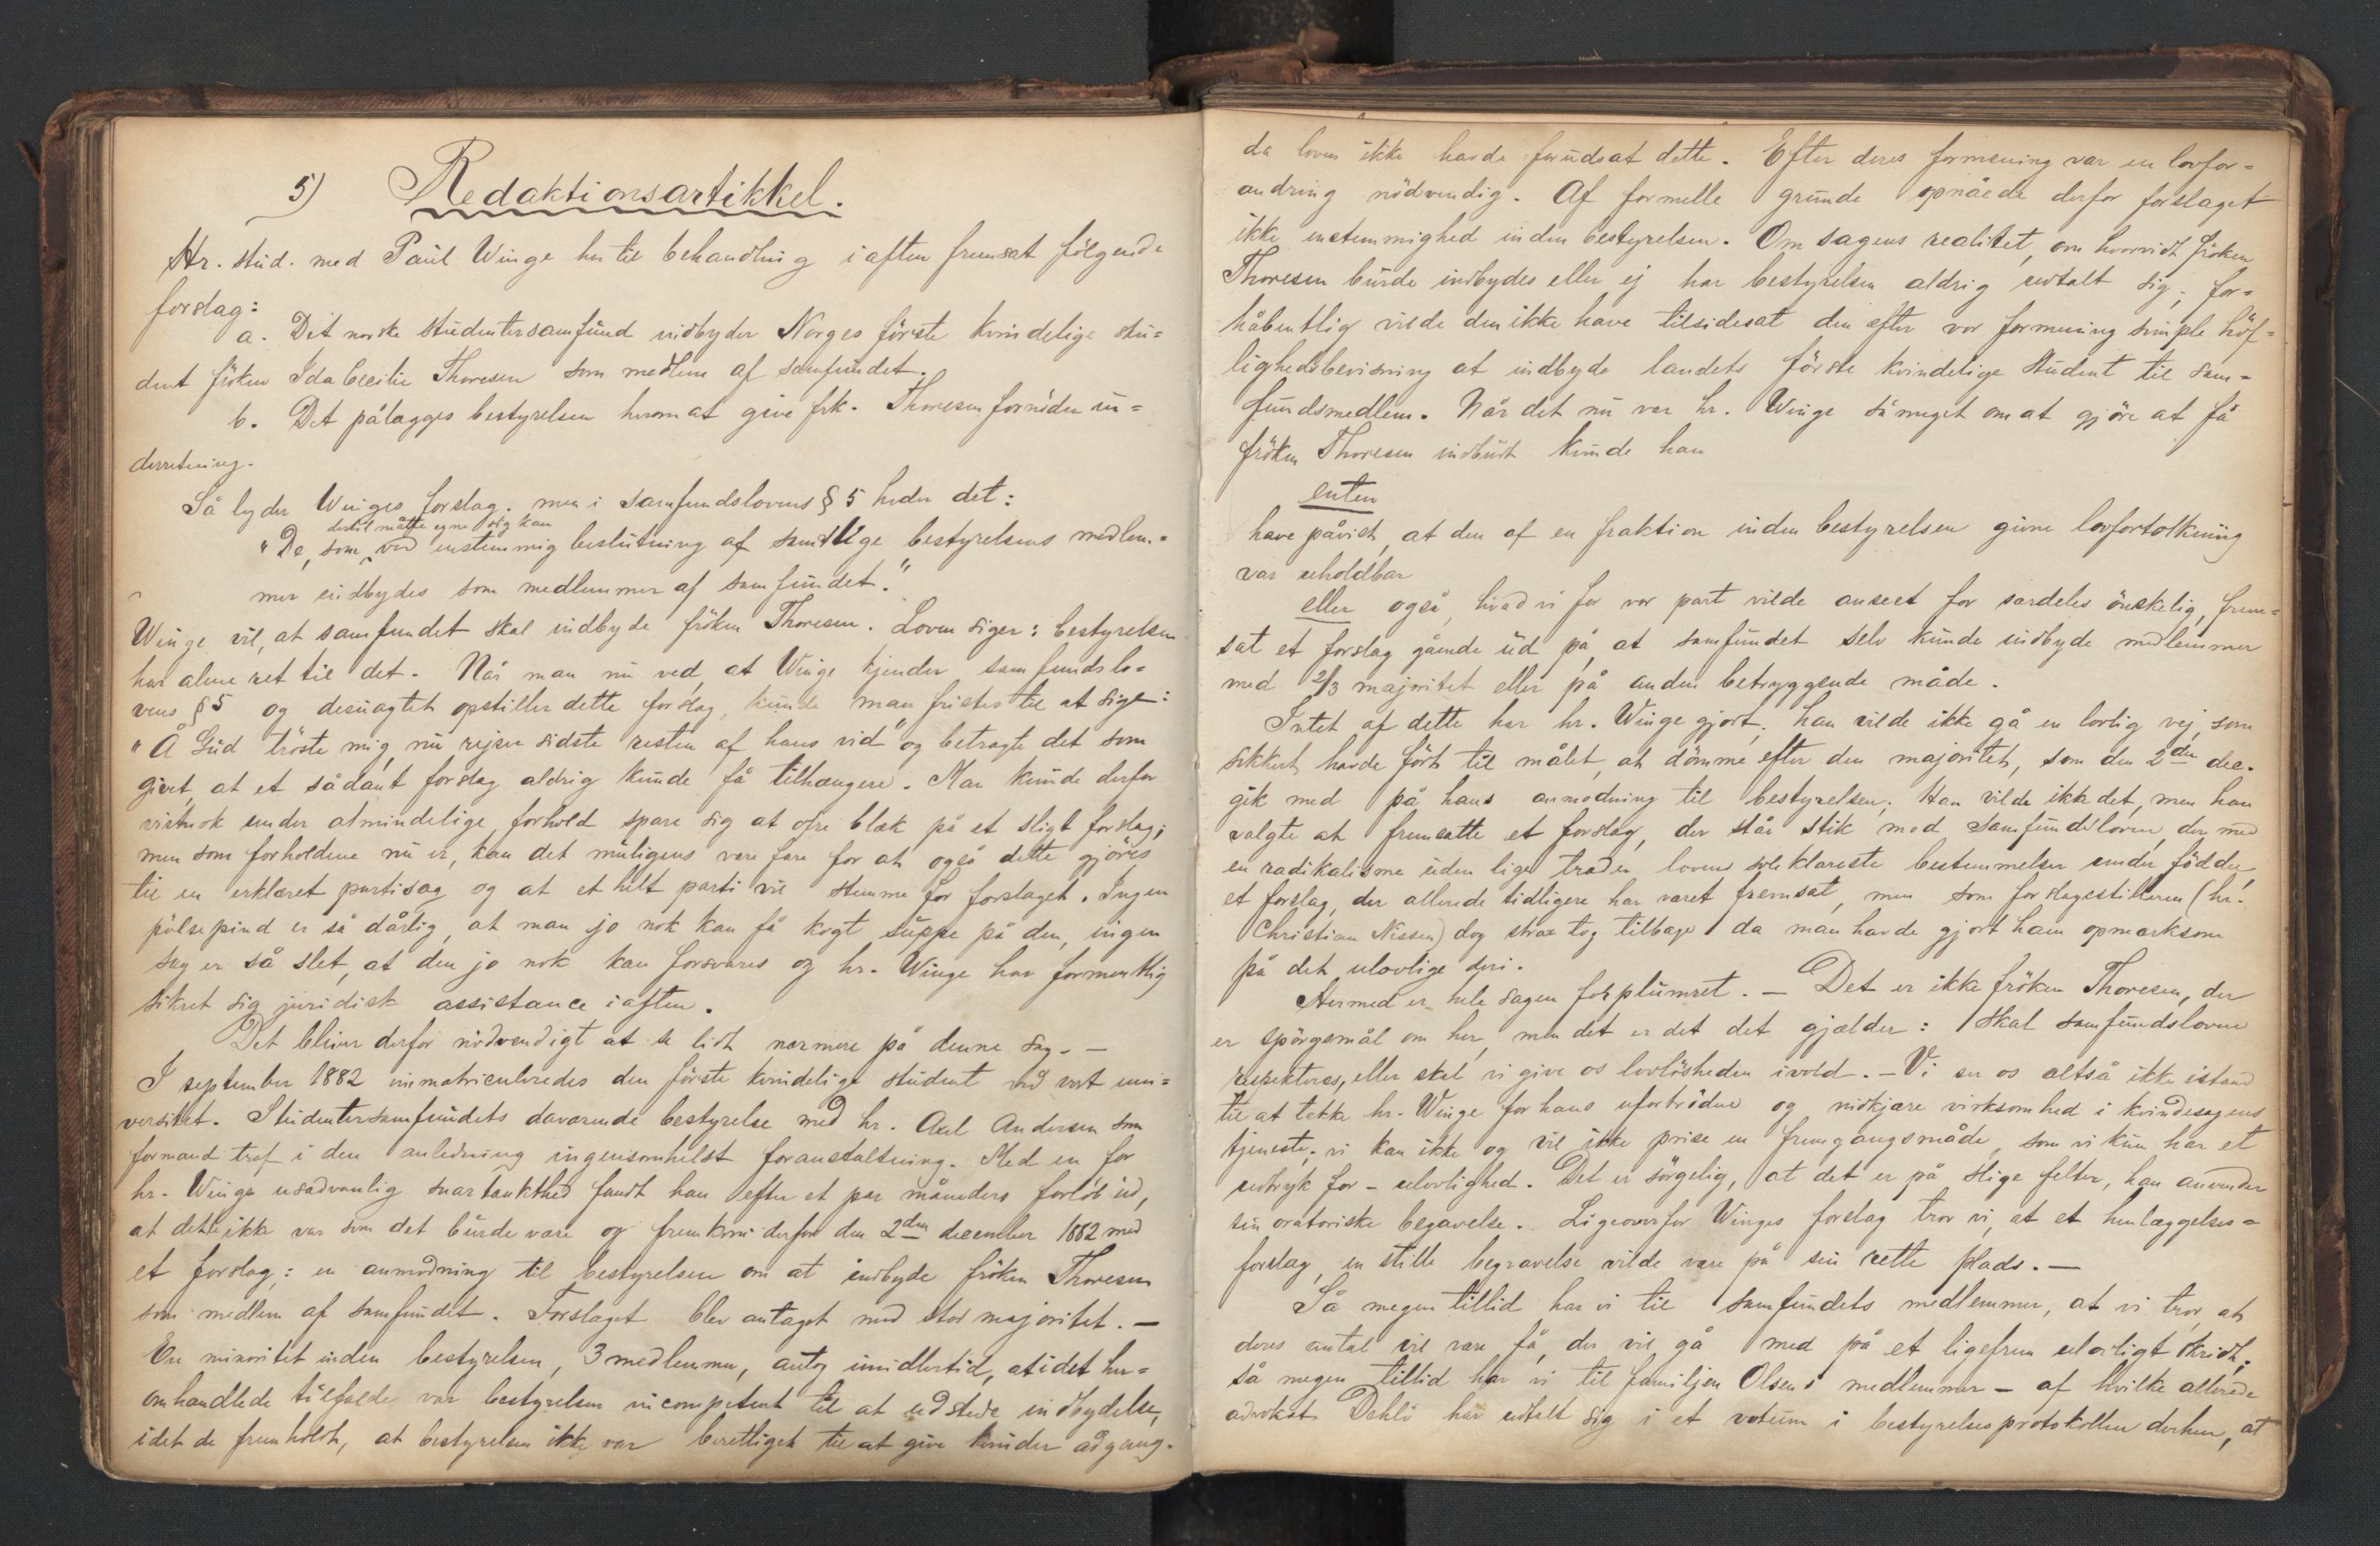 5) Redaktionsartikkel.
Hr. stud. med Paul Winge har til behandling iaften fremsat følgende
forslag:
a. Det norske studentersamfund indbyder Norges første kvindelige stu=
dent frøken Ida Cecilie Thoresen som medlem af samfundet.
b. Det pålægges bestyrelsen herom at give frk. Thoresen fornøden un=
derretning.
Så lyder Winges forslag, men i samfundslovens § 5 heder det:
dertil måtte egne sig kan
"De, som ved enstemmig beslutning af samtlige bestyrelsens medlem=
mer indbydes som medlemmer af samfundet."
Winge vil, at samfundet skal indbyde frøken Thoresen. Loven siger: bestyrelsen
har alene ret til det. Når man nu ved, at Winge kjender samfundslo=
vens § 5 og desuagtet opstiller dette forslag, kunde man fristes til at sige:
"Å Gud trøste mig, nu rejser sidste resten af hans vid" og betragte det som
givet, at et sådant forslag aldrig kunde få tilhængere. Man kunde derfor
vistnok under almindelige forhold spare sig at ofre blæk på et sligt forslag;
men som forholdene nu er, kan det muligens være fare for at også dette gjøres
til en erklæret partisag og at et helt parti vil stemme for forslaget. Ingen
pølsepind er så dårlig, at man jo nok kan få kogt suppe på den, ingen
sag er så slet, at den jo nok kan forsvares og hr. Winge har formentlig
sikret sig juridisk assistance iaften.
Det bliver derfor nødvendigt at se lidt nærmere på denne sag. —
I september 1882 immatriculeredes den første kvindelige student ved vort uni=
versitet. Studentersamfundets daværende bestyrelse med hr. Axel Andersen som
formand traf i den anledning ingensomhelst foranstaltning. Med en for
hr. Winge usædvanlig snartænkthed fandt han efter et par måneders forløb ud,
at dette ikke var som det burde være og fremkom derfor den 2den december 1882 med
et forslag: en anmodning til bestyrelsen om at indbyde frøken Thoresen
som medlem af samfundet. Forslaget blev antaget med stor majoritet. —
En minoritet inden bestyrelsen, 3 medlemmer, antog imidlertid, at i det her=
omhandlede tilfælde var bestyrelsen incompetent til at udstede indbydelse,
idet de fremholdt, at bestyrelsen ikke var berettiget til at give kvinder adgang.
da loven ikke havde forudsat dette. Efter deres formening var en lovfor=
andring nødvendig. Af formelle grunde opnåede derfor forslaget
ikke enstemmighed inden bestyrelsen. Om sagens realitet, om hvorvidt frøken
Thoresen burde indbydes eller ej har bestyrelsen aldrig udtalt sig; for=
håbentlig vilde den ikke have tilsidesat den efter vor formening simple høf=
lighedsbevisning at indbyde landets første kvindelige student til sam=
fundsmedlem. Når det nu var hr. Winge så meget om at gjøre at få
frøken Thoresen indbudt kunde han
enten
have påvist, at den af en fraktion inden bestyrelsen givne lovfortolkning
var uholdbar
eller også, hvad vi for vor part vilde anseet for særdeles ønskelig, frem=
sat et forslag gående ud på, at samfundet selv kunde indbyde medlemmer
med 2/3 majoritet eller på anden betryggende måde.
Intet af dette har hr. Winge gjort; han vilde ikke gå en lovlig vej, som
sikkert havde ført til målet, at dømme efter den majoritet, som den 2den dec.
gik med på hans anmodning til bestyrelsen. Han vilde ikke det, men han
valgte at fremsætte et forslag, der står stik mod samfundsloven, der med
en radikalisme uden lige træder lovens soleklareste bestemmelser under fødder,
et forslag, der allerede tidligere har været fremsat, men som forslagsstilleren (hr.
Christian Nissen) dog strax tog tilbage da man havde gjort ham opmærksom
på det ulovlige deri.
Hermed er hele sagen forplumret. — Det er ikke frøken Thoresen, der
er spørgsmål om her, men det er det det gjælder: skal samfundsloven
respekteres, eller skal vi give os lovløsheden ivold. — Vi ser os altså ikke istand
til at takke hr. Winge for hans ufortrødne og nidkjære virksomhed i kvindesagens
tjeneste; vi kan ikke og vil ikke prise en fremgangsmåde, som vi kun har et
udtryk for – ulovlighed. Det er sørgelig, at det er på slige felter, han anvender
sin oratoriske begavelse. Ligeoverfor Winges forslag tror vi, at et henlæggelses=
forslag, en stille begravelse vilde være på sin rette plads. —
Så megen tillid har vi til samfundets medlemmer, at vi tror, at
deres antal vil være få, der vil gå med på et ligefrem ulovligt skridt;
så megen tillid har vi til familjen Olsens medlemmer – af hvilke allerede
advokat Dahls har udtalt sig i et votum i bestyrelsesprotokollen derhen, at